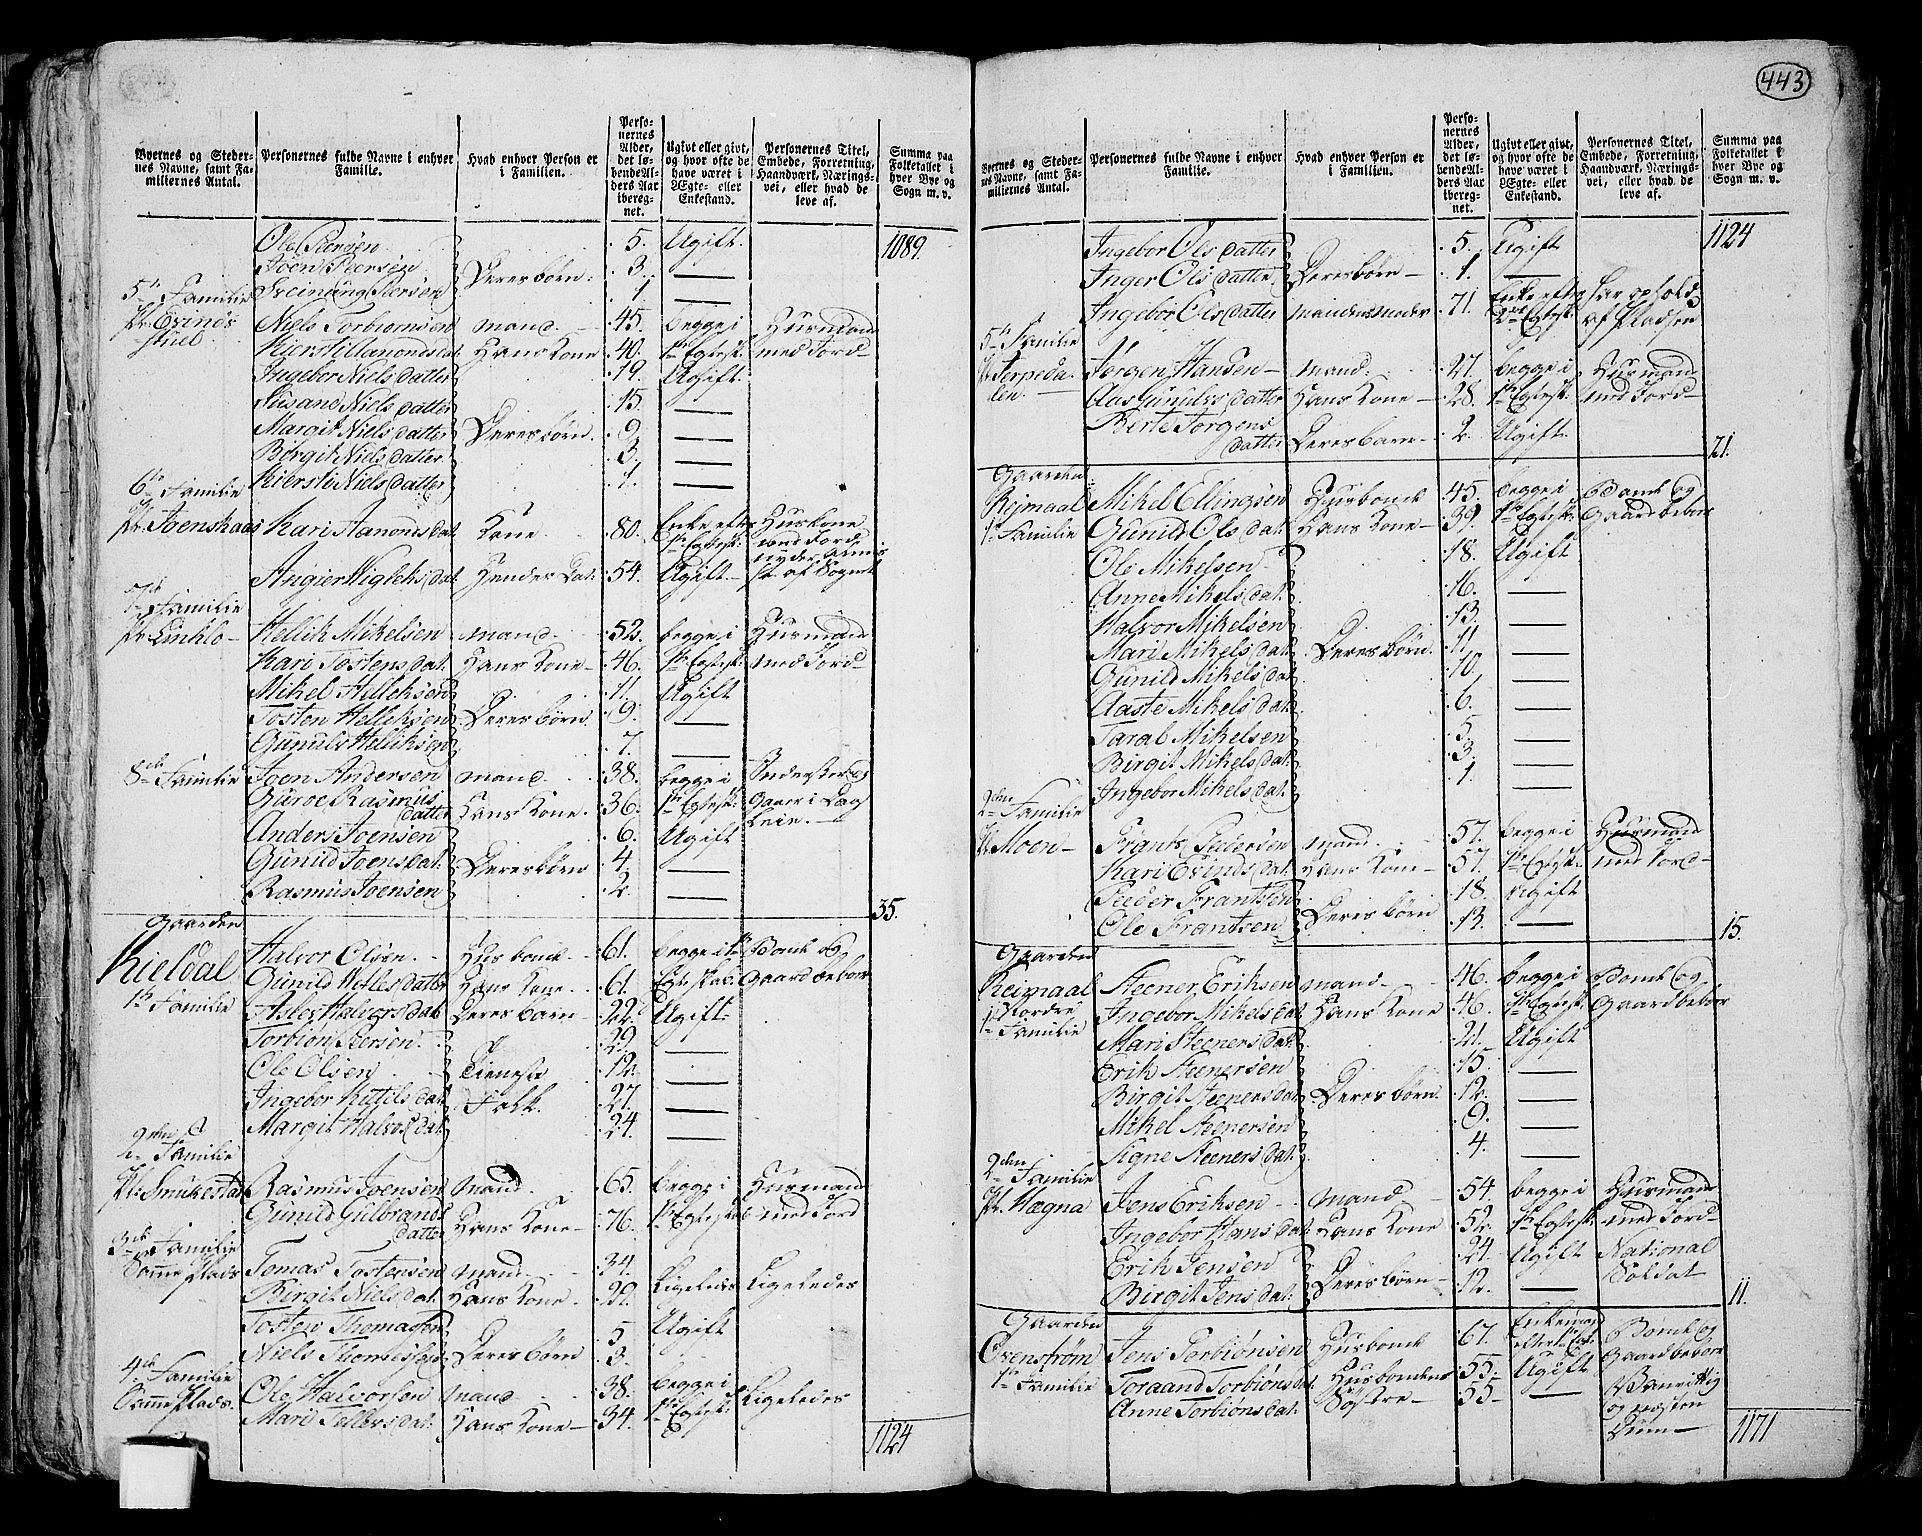 443
Byernes og Steder-
nes Navne, samt Fa-
miliernes Antal.
Personernes fulde Navne i enhver
Familie.
Hvad enhver Person er
i Familien.
Perso-
nernes
Alder,
det lø-
bende Al-
ders Aar
iberegnet.
Ugivt eller givt,
og hvor ofte de
have været i
Ægte- eller
Enkestand.
Personernes Titel,
Embede, Forretning,
Haandværk, Nærings-
vei, eller hvad de
leve af.
Summa paa
Folketallet i
hver Bye og
Sogn m. v.
Ole Peersen 5. Ugift 1089.
Joen Peersen Deres børn 3.
5te Familie Sveinung Peersen 1
Pl: Evinds- Niels Torbiørnsen mand 45. begge i Husmand
stuel Kiersti Aanonds dat: Hans Kone 40. 1te Egtesk: med Jord
Ingebor Niels datter 19. Ugift
Susane Niels datter 15.
Margit Niels datter Deres børn 9
Birgit Niels datter 3.
Kiersti Niels datter 1.
6te Familie
Pl: Joenskaas Kari Aanonds dat: Kone 80. Enke efter Huskone
1te Egtesk: med Jord
Hendes dat: 54. Ugift af Sognet
7de Familie
Pl: Hellik Mikelsen mand 52. begge i Husmand
Kari Tostens dat: Hans Kone 46. 1te Egtesk: med Jord
Mikel Helliksen 11. Ugift
Tosten Helliksen Deres børn 9.
Gunuls Helliksen 7.
8de Familie Joen Andersen mand 38. begge i Inderster og
Guroe Rasmus
datter Hans Kone 36. 1te Egtesk:
Anders Joensen 6. Ugift
Gunild Joens dat: Deres børn 4
Rasmus Joensen 2.
35.
Gaarden
Kieldal Halvor Olsen Husbonde 61. begge i 1te Bonde og
Gunild datter Hans Kone 61. Egteskab: Gaardbeboer
1te Familie Halvors dat: Deres barn 22. Ugift
Torbiøn Peersen 29
Ole Olsen Tieneste 12.
Ingebor Kittils dat: Folk. 27.
Margit Halvors dat: 24
2den Familie
Rasmus Joensen mand 65. begge i Husmand
Gunild Gulbrands
datter Hans Kone 76. 1te Egtesk: med Jord
3die Familie
Samme Plads Tomas Tostensen mand 34. Ligeledes Ligeledes
Birgit Niels dat: Hans Kone 29.
Tosten Thomassen 5 Ugift
Niels Thomassen Deres børn 3.
4de Familie
Samme Plads Ole Halvorsen mand 38. begge i Ligeledes
Mari dat: Hans Kone 34. 1te Egtesk:
1124
Byernes og Steder-
nes Navne, samt Fa-
miliernes Antal.
Personernes fulde Navne i enhver
Familie.
Hvad enhver Person er
i Familien.
Perso-
nernes
Alder,
det lø-
bende Al-
ders Aar
iberegnet.
Ugivt eller givt,
og hvor ofte de
have været i
Ægte- eller
Enkestand.
Personernes Titel,
Embede, Forretning,
Haandværk, Nærings-
vei, eller hvad de
leve af.
Summa paa
Folketallet i
hver Bye og
Sogn m. v.
Ingebor Ols datter 5. Ugift 1124
Inger Ols datter Deres børn 1.
Ingebor Ols datter mandens moder 71. Enke efter har ophold
Egtesk: af Pladsen
5te Familie
Pl: Terpeda- Jørgen Hansen mand 27. begge i Husmand
len. Aas datter Hans Kone 28. 1te Egtesk: med Jord
Berte Jorgens
datter Deres barn 2. Ugift
21.
Gaarden
Rejmaal Mikel Ellingsen Husbonde 45. begge i Bonde og
1te Familie Gunild Ols dat: Hans Kone 39. 1te Egtesk: Gaardbeboer
Ole Mikelsen 18. Ugift
Anne Mikels dat: 16.
Halvor Mikelsen 13.
Mari Mikels dat: Deres børn. 11
Gunild Mikels dat: 10.
Aaste Mikels dat: 6.
Taral Mikelsen 5
Birgit Mikels dat: 3
Ingebor Mikels dat: 1.
2den Familie
Pl: Moen Frants Pedersen mand 57. begge i Husmand
Kari Evinds dat: Hans Kone 57. 1te Egtesk: med Jord
Peder Frantsen 18. Ugift
Ole Frantsen Deres børn 13.
15.
Gaarden
Reimaal Steener Eriksen mand 46. begge i Bonde og
Nordre Ingebor Mikels dat: Hans Kone 46. 1te Egtesk: Gaardbeboer
1te Familie
Mari Steeners dat: 21. Ugift
Erik Steenersen 15.
Birgit Steeners dat: Deres børn. 12.
Mikel Steenersen 9.
Signe Steeners dat: 4.
2den Familie
Pl: Hægna Jens Eriksen mand 54. begge i Husmand
Ingebor Hans dat: Hans Kone 52. 1te Egtesk: med Jord
Erik Jensen 24. Ugift National
Soldat
Birgit Jens dat: Deres børn 12.
11.
Gaarden
Oxenstrøm Jens Torbiønsen Husbonde 67. Enkemand Bonde og
efter 1te Egt: Gaardbeboer
1te Familie Toraand Torbiøns dat: Husbondens 55. Ugift Vanvittig
Anne Torbiøns dat: Søstre 55 og næsten
Dum
1171